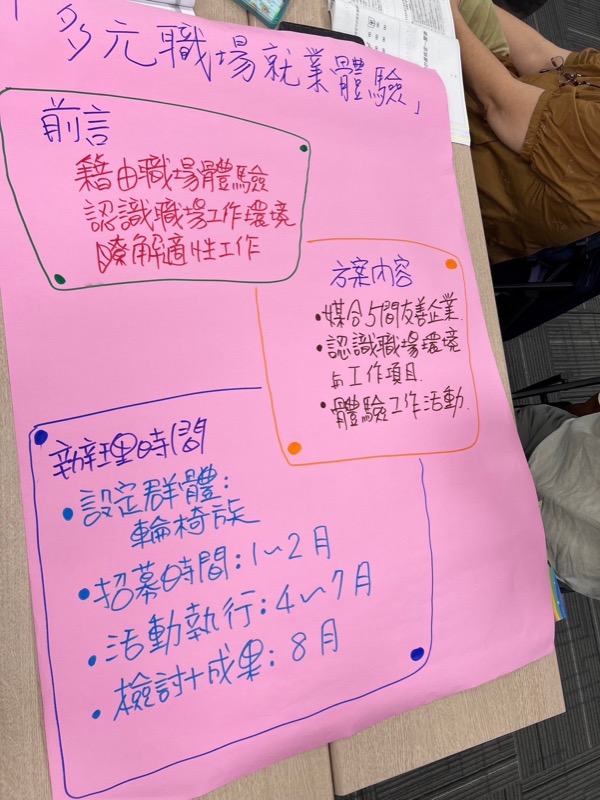 「多元職場就業體驗」
前言
藉由職場體驗
認識職場工作環境
瞭解適性工作
方案內容
•媒合5間友善企業.
•認識職場環境
与工作項目.
•體驗工作活動.
辦理時間
•設定群體：
輪椅族
•招募時間：1～2月
•活動執行：4～7月
•檢討+成果：8月